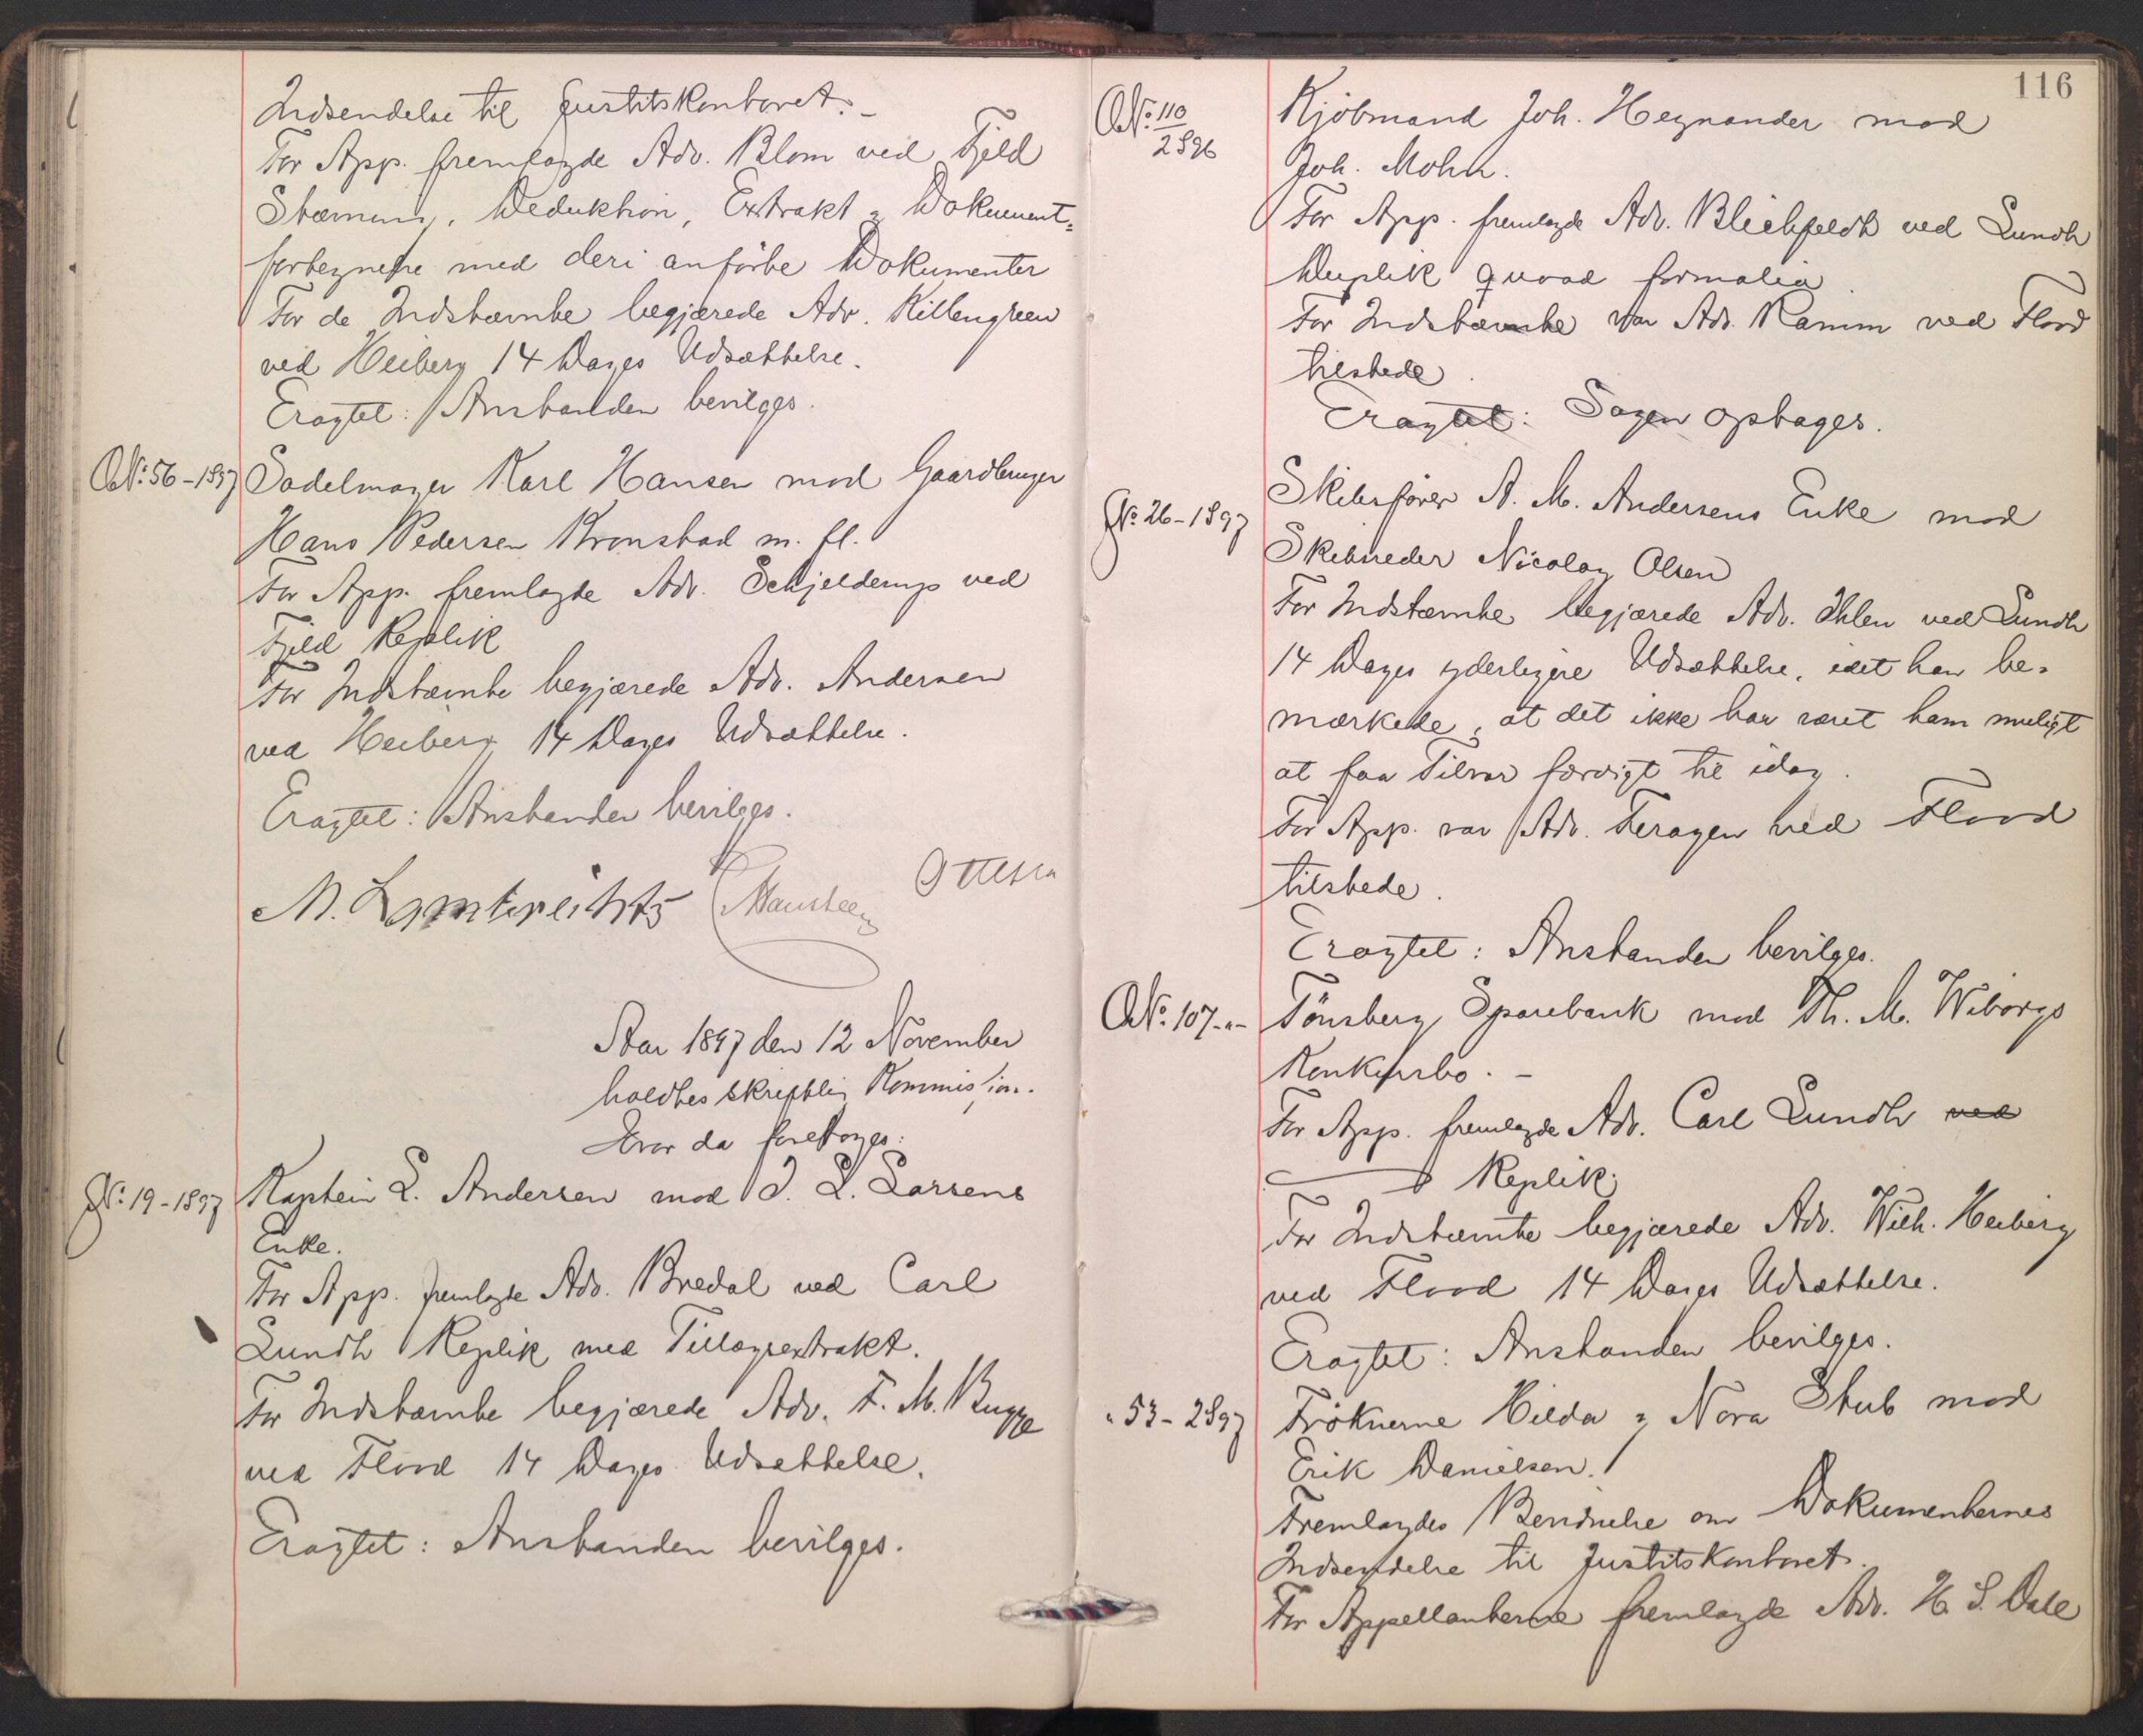 Indsendelse til Justitskontoret. –
For App. fremlagde Adv. Blom ved Fjeld
Stævning, Deduktion, Extrakt & Dokument=
fortegnelse med deri anförte Dokumenter
For de Indstævnte begjærede Adv. Killengreen
ved Heiberg 14 Dages Udsættelse.
Eragtet: Anstanden bevilges.
No. 56 - 1897
Sadelmager Karl Hansen mod Gaardbruger
Hans Pedersen Kronstad m. fl.
For App. fremlagde Adv. Schjelderup ved
Fjeld Replik
For Indstævnte begjærede Adv. Andersen
ved Heiberg 14 Dages Udsættelse.
Eragtet: Anstanden bevilges.
M. Lambrechts Hansteen Ottesen
Aar 1897 den 12 November
holdtes skriftlig Kommission.
Hvor da foretoges:
No. 19 - 1897
Kaptein L. Andersen mod J. L. Larsens
Enke.
For App. fremlagde Adv. Bredal ved Carl
Lundh Replik med Tillægsextrakt.
For Indstævnte begjærede Adv. F. M. Bugge
ved Flood 14 Dages Udsættelse.
Eragtet: Anstanden bevilges.
116
No. 110
2 896
Kjöbmand Joh. Heynander mod
Joh. Mohn.
For App. fremlagde Adv. Blichfeldt ved Lundh
Duplik quoad formalia
For Indstævnte var Adv. Ramm ved Flood
tilstede.
Eragtet: Sagen optages.
No. 26 - 1897
Skibsförer A. M. Andersens Enke mod
Skibsreder Nicolay Olsen
For Indstævnte begjærede Adv. Ihlen ved Lundh
14 Dages yderligere Udsættelse, idet han be-
mærkede, at det ikke har været ham muligt
at faa Tilsvar færdigt til idag.
For App. var Adv. Feragen ved Flood
tilstede.
Eragtet: Anstanden bevilges.
No. 107 - " -
Tönsberg Sparebank mod Th. M. Wiborgs
Konkursbo. –
For App. fremlagde Adv. Carl Lundh ved
Replik.
For Indstævnte begjærede Adv. Wilh. Heiberg
ved Flood 14 Dages Udsættelse.
Eragtet: Anstanden bevilges.
" 53 - 2 897
Fröknerne Hilda & Nora Stub mod
Erik Danielsen.
Fremlagdes Bevidnelse om Dokumenternes
Indsendelse til Justitskontoret.
For Appellanterne fremlagde Adv. H. S. Dale